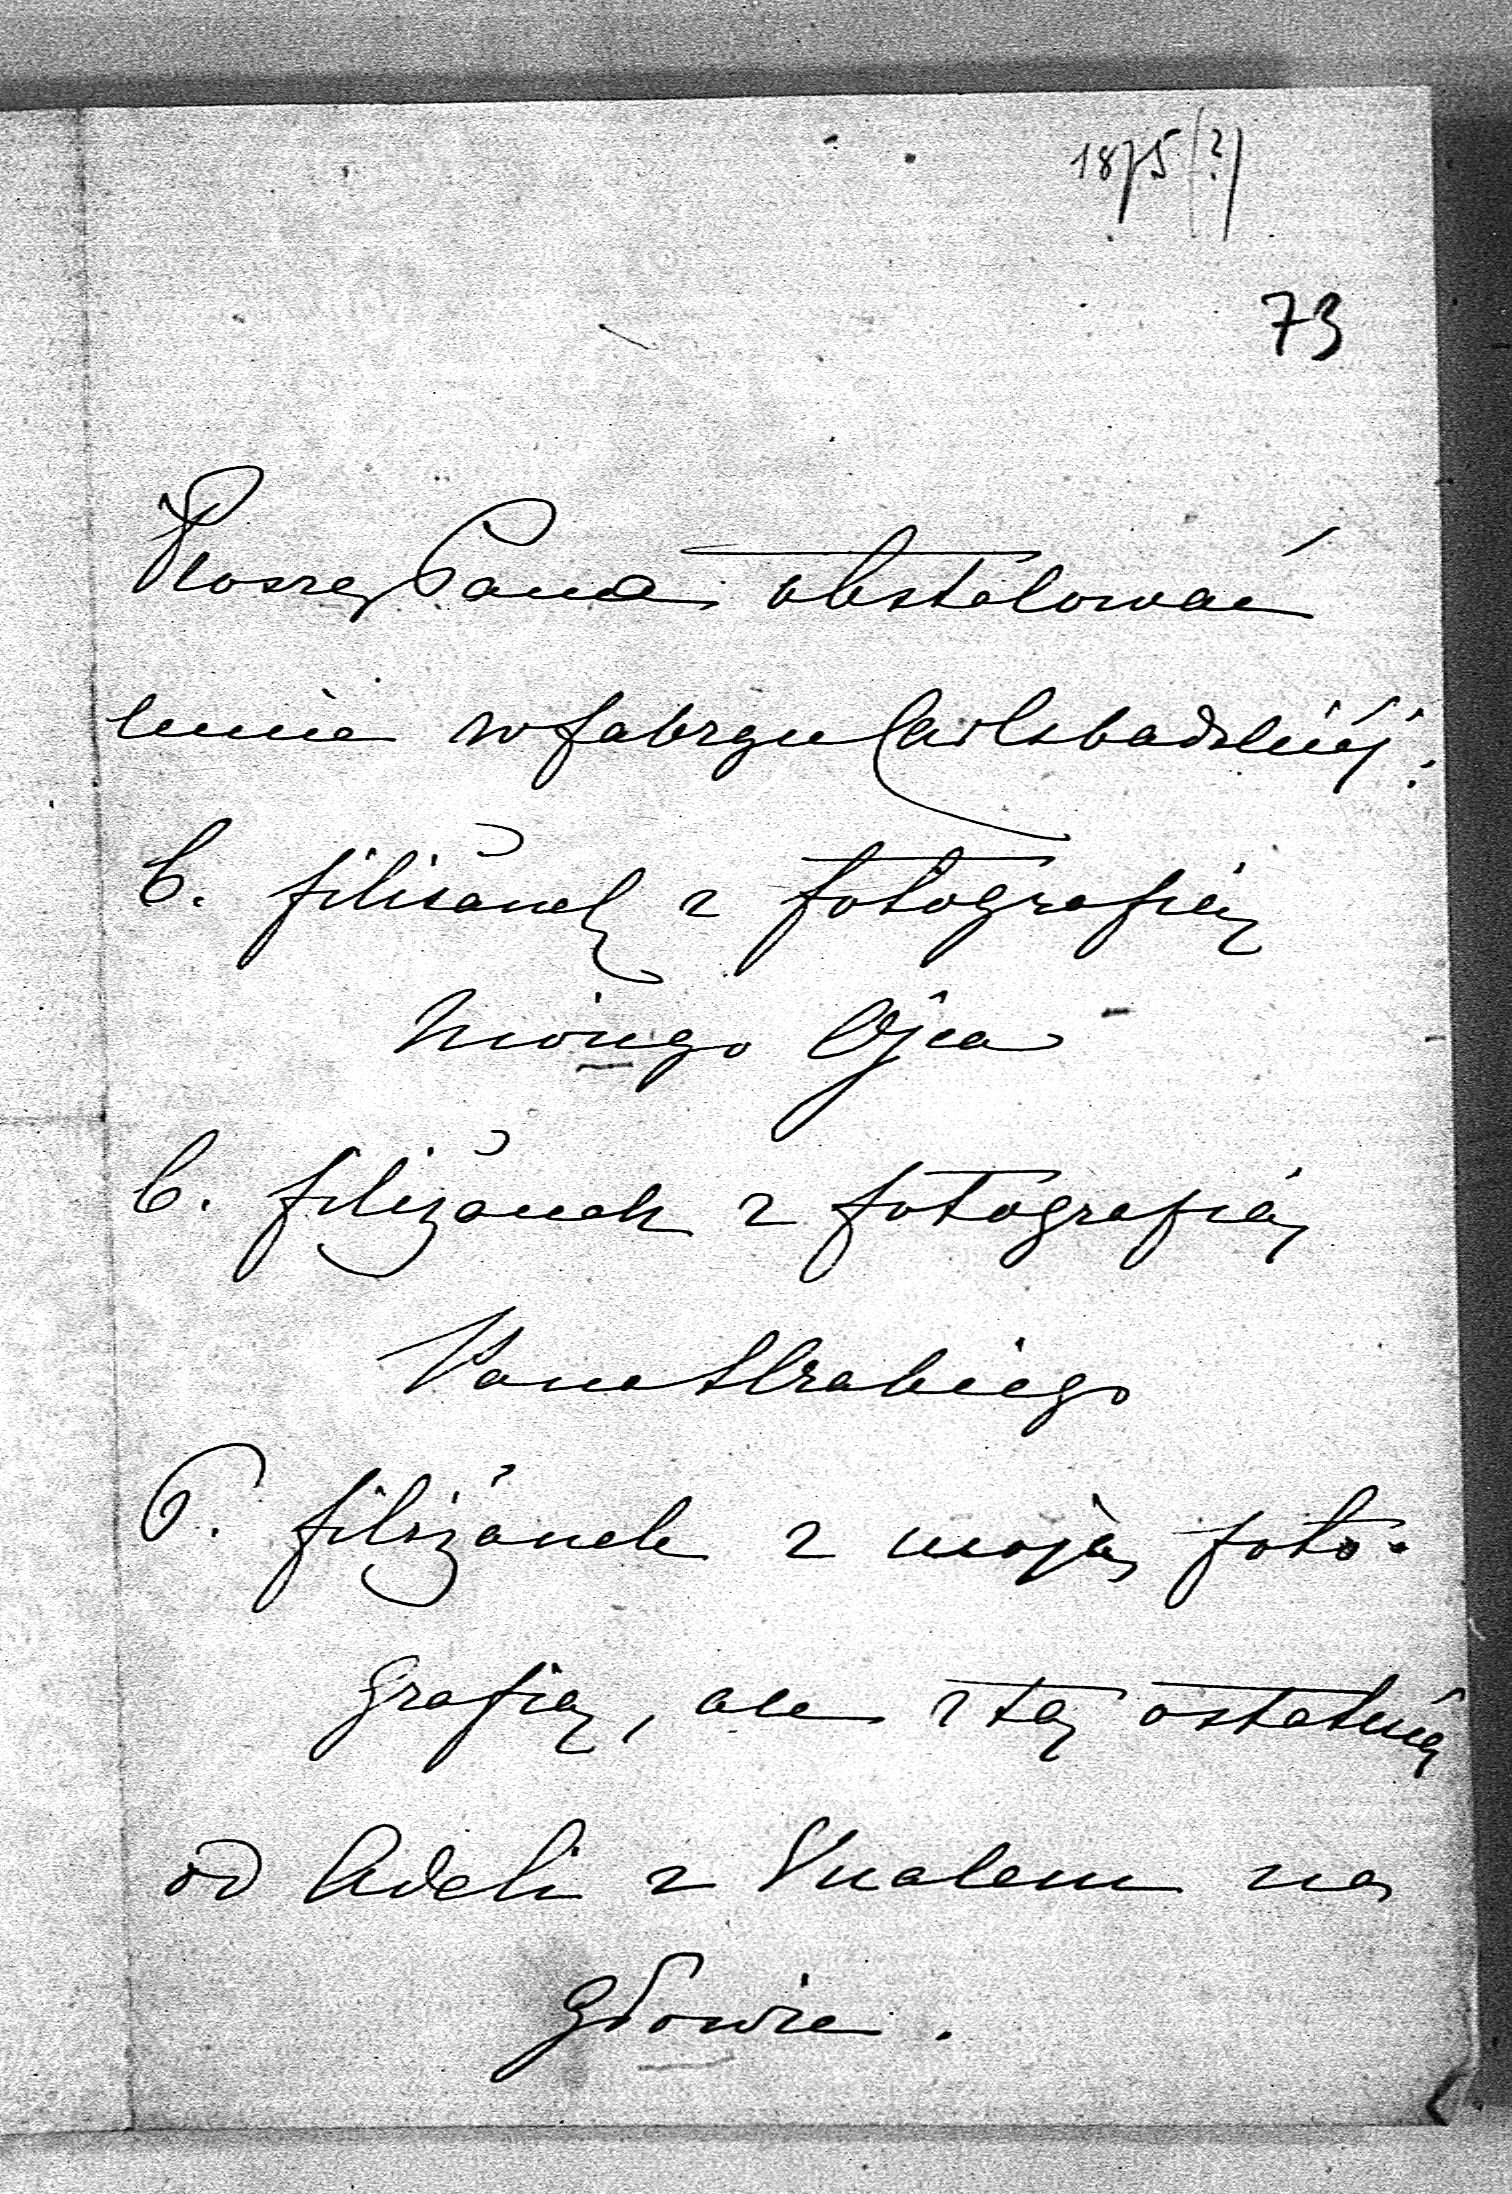 1875 (?)
73
Proszę Pana obstelować
dla mnie w fabryce Carlsbadzkiéj:
6. filiżanek z fotografią
mojego Ojca
6. filiżanek z fotografią
Pana Hrabiego
6. filiżanek z moją foto-
grafią, ale z tą ostatnią
od Adeli z Vualem na
głowie.